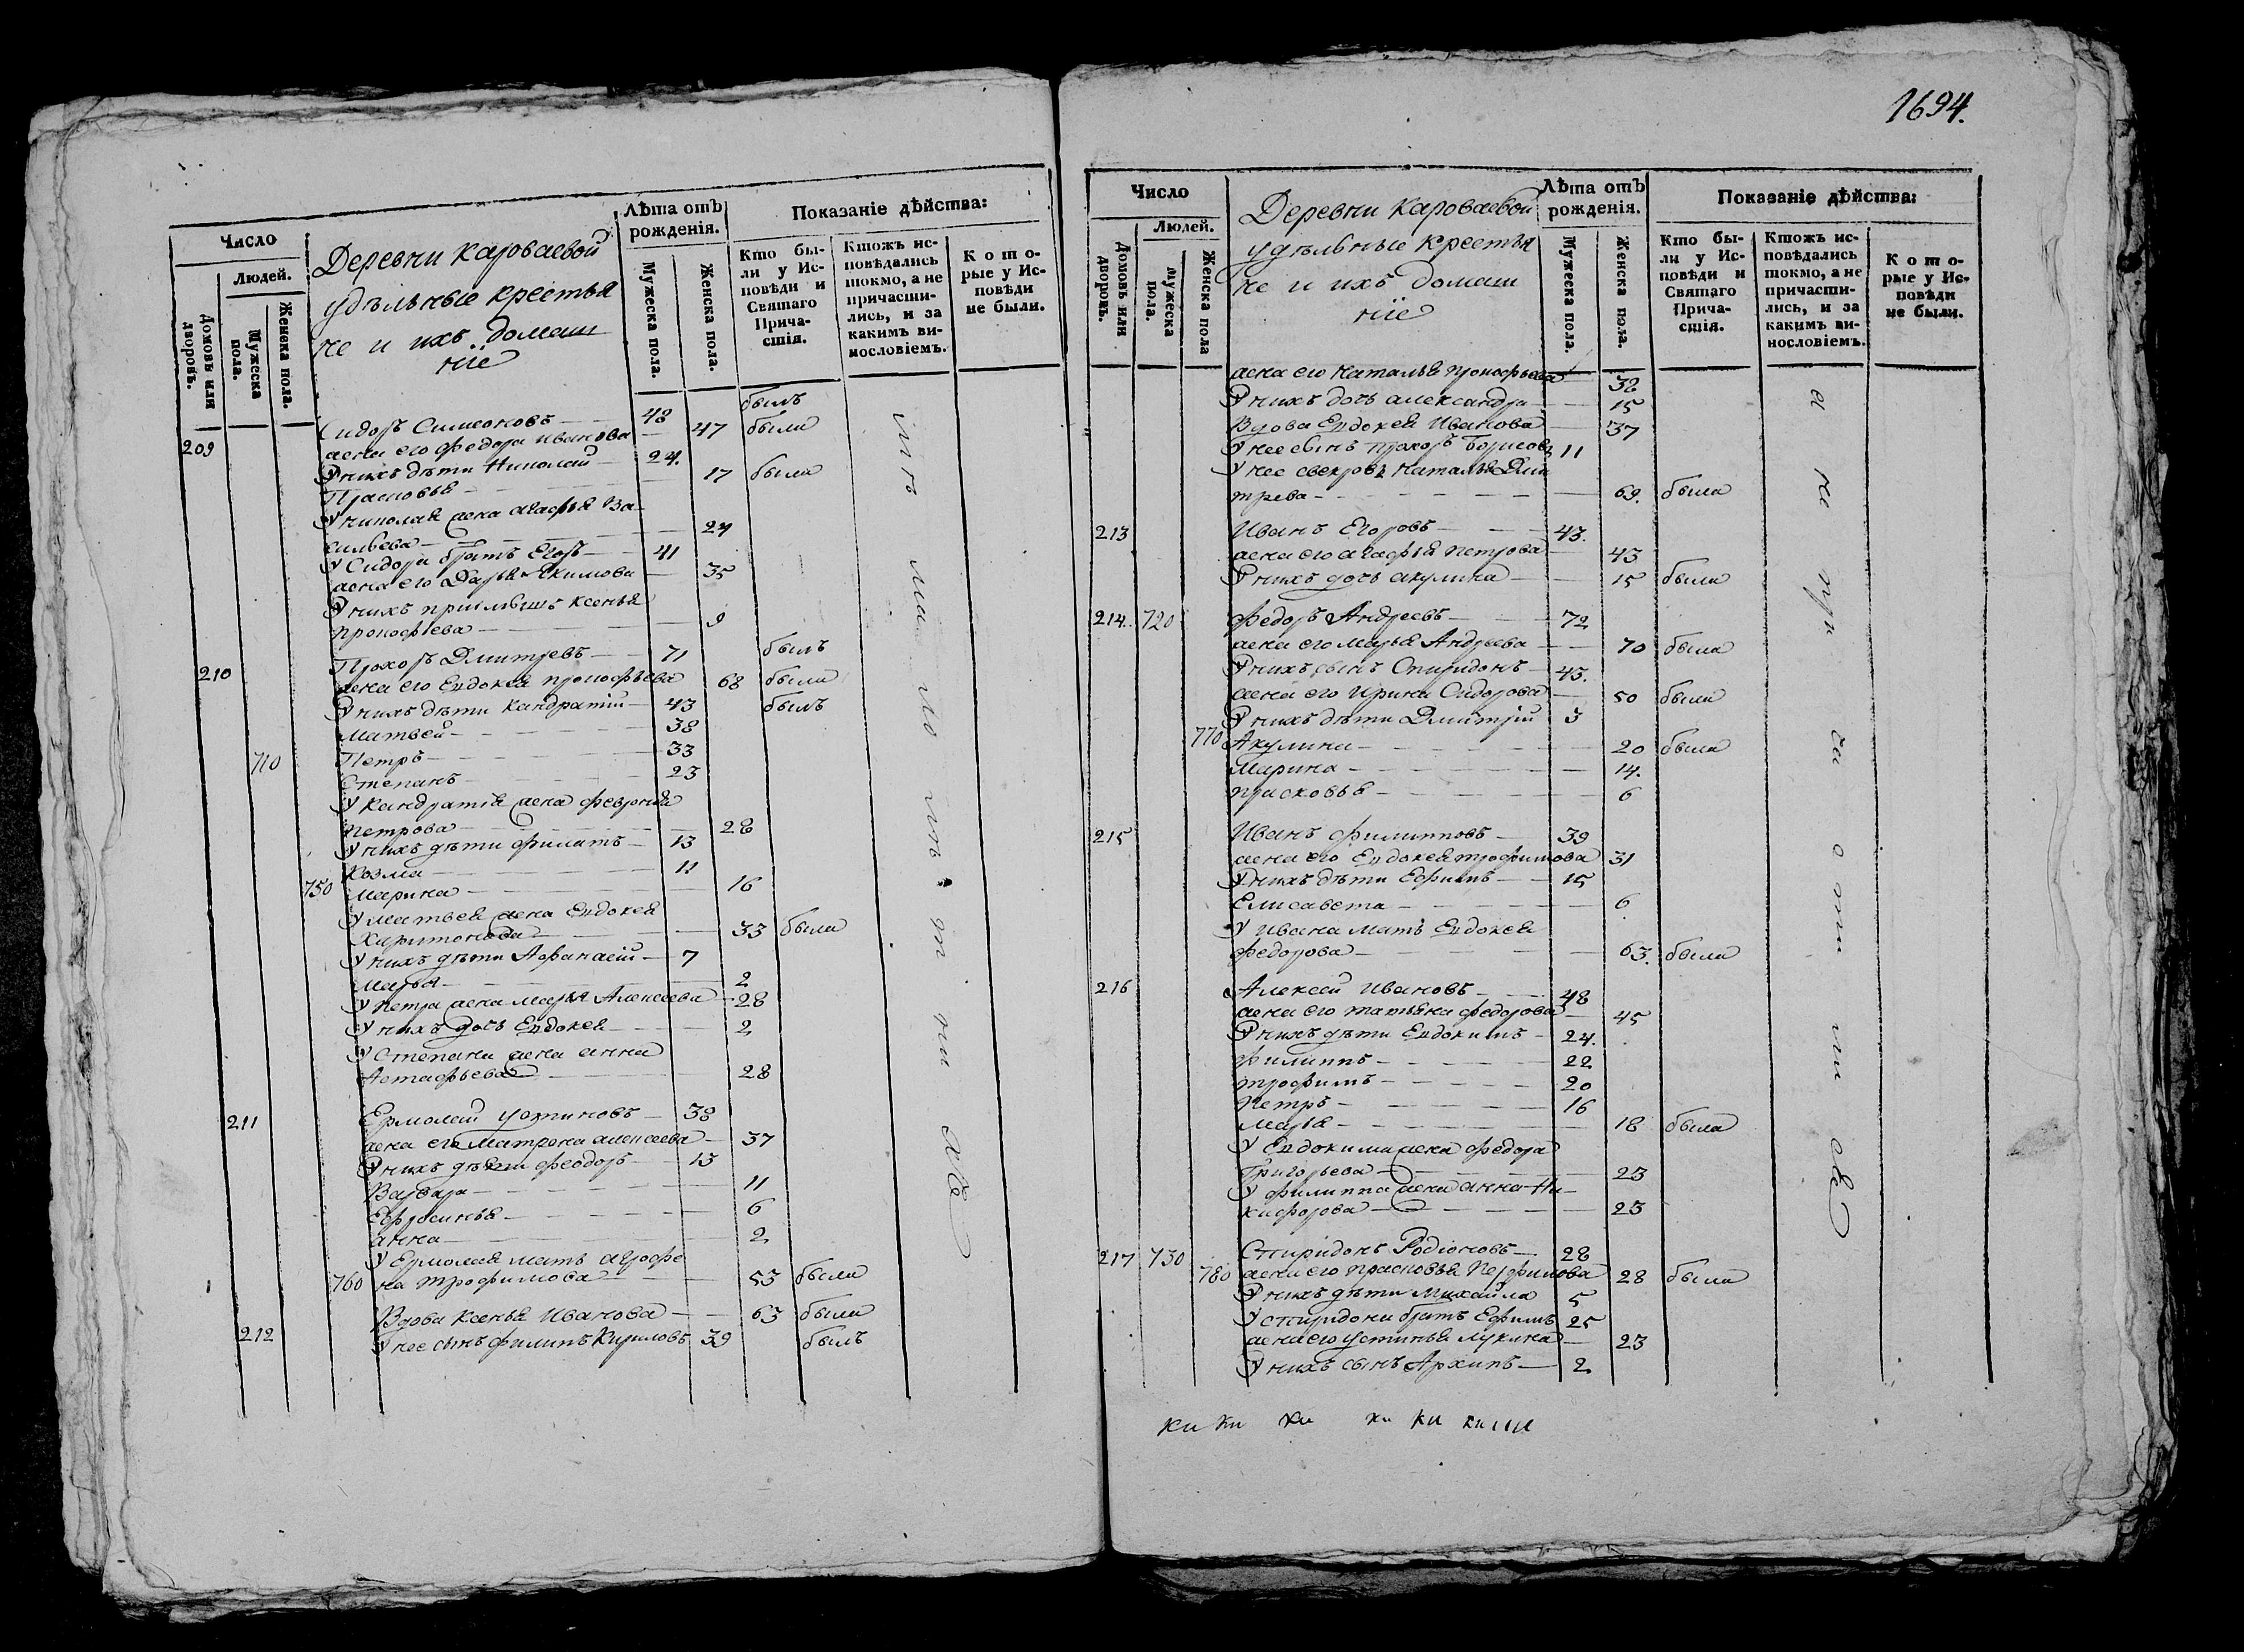 1694.
Число
Людей.
Домовъ или дворовъ.
Мужеска пола.
Женска пола.
Деревни Кароваевой
удѣльные крестья
не и ихъ домаш
ніе
Лѣта отъ рожденія.
Мужеска пола.
Женска пола.
Показаніе дѣйства:
Кто бы-
ли у Ис-
повѣди и
Святаго
Прича-
стія.
Ктожъ ис-
повѣдались
токмо, а не
причасти-
лись, и за
какимъ ви-
нословіемъ.
Кото-
рые у Ис-
повѣди
не были.
209 Сидоръ Симеоновъ 48 былъ
жена его Федора Иванова 47 была
У нихъ дѣти Николай 24.
Прасковья 17 была
У Николая жена Агафья Ва-
сильева 24
У Сидора братъ Егоръ 41
жена его Дарья Екимова 35
У нихъ приемышъ Ксенья
Прокофьева 9
210 Прохоръ Дмитревъ 71 былъ
жена его Евдокея Прокофьева 68 была
У нихъ дѣти Кандратій 43 былъ
Матвей 38
710 Петръ 33
Степанъ 23
У Кандратья жена Февронья
Петрова 28
У нихъ дѣти Филатъ 13
Козма 11
750 Марина 16
У Матвея жена Евдокея
Харитонова 33 была
У нихъ дѣти Афанасій 7
Марья 2
У Петра жена Марья Алексеева 28
У нихъ дочь Евдокея 2
У Степана жена Анна
Астафьева 28
211 Ермолай Устиновъ 38
жена его Матрона Алексеева 37
У нихъ дѣти Феодоръ 13
Варвара 11
Ефросинья 6
Анна 2
У Ермолая мать Аграфе
760 на Трофимова 53 была
212 Вдова Ксенья Иванова 63 была
У нее сынъ Филипъ Кириловъ 39 былъ
Число
Людей.
Домовъ или дворовъ.
Мужеска пола.
Женска пола
Деревни Кароваевой
удѣльные крестья
не и ихъ домаш
ніе
Лѣта отъ рожденія.
Мужеска пола.
Женска пола.
Показаніе дѣйства:
Кто бы-
ли у Ис-
повѣди и
Святаго
Прича-
стія.
Ктожъ ис-
повѣдались
токмо, а не
причасти-
лись, и за
какимъ ви-
нословіемъ.
Кото-
рые у Ис-
повѣди
не были.
жена его Наталья Прокофьева 32
У нихъ дочь Александра 15
Вдова Евдокея Иванова 37
У нее сынъ Прохоръ Борисовъ 11
У нее свекровь Наталья Дми
трева 69. была
213 Иванъ Егоровъ 43.
жена его Агафья Петрова 43
У нихъ дочь Акулина 15 была
214. 720 Федоръ Андреевъ 72
жена его Марья Андреева 70 была
У нихъ сынъ Спиридонъ 43.
жена его Ирина Сидорова 50 была
У нихъ дѣти Дмитрій 3
770 Акулина 20 была
Марина 14.
Прасковья 6
215 Иванъ Филипповъ 39
жена его Евдокея Трофимова 31
У нихъ дѣти Ефимъ 15
Елисавета 6
У Ивана мать Евдокея
Федорова 63. была
216 Алексей Ивановъ 48
жена его Татьяна Федорова 45
У нихъ дѣти Евдокимъ 24.
Филиппъ 22
Трофимъ 20
Петръ 16
Марья 18 была
У Евдокима жена Федора
Григорьева 23
У Филиппа жена Анна Ни-
кифорова 23
217 730 Спиридонъ Родіоновъ 28
780 жена его Прасковья Перфилова 28 была
У нихъ дѣти Михайла 5
У Спиридона братъ Ефимъ 25
жена его Устинья Лукина 23
У нихъ сынъ Архипъ 2
ки ки ки ки ки